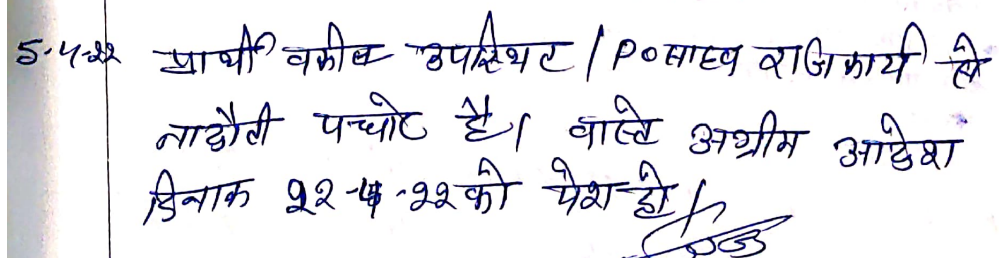 5-4-22 प्रार्थी वकील उपस्थित / PO साहब राजकार्य से
नादौती पधारे है। वास्ते अग्रीम आदेश
दिनाक 22-4-22 को पेश हो।